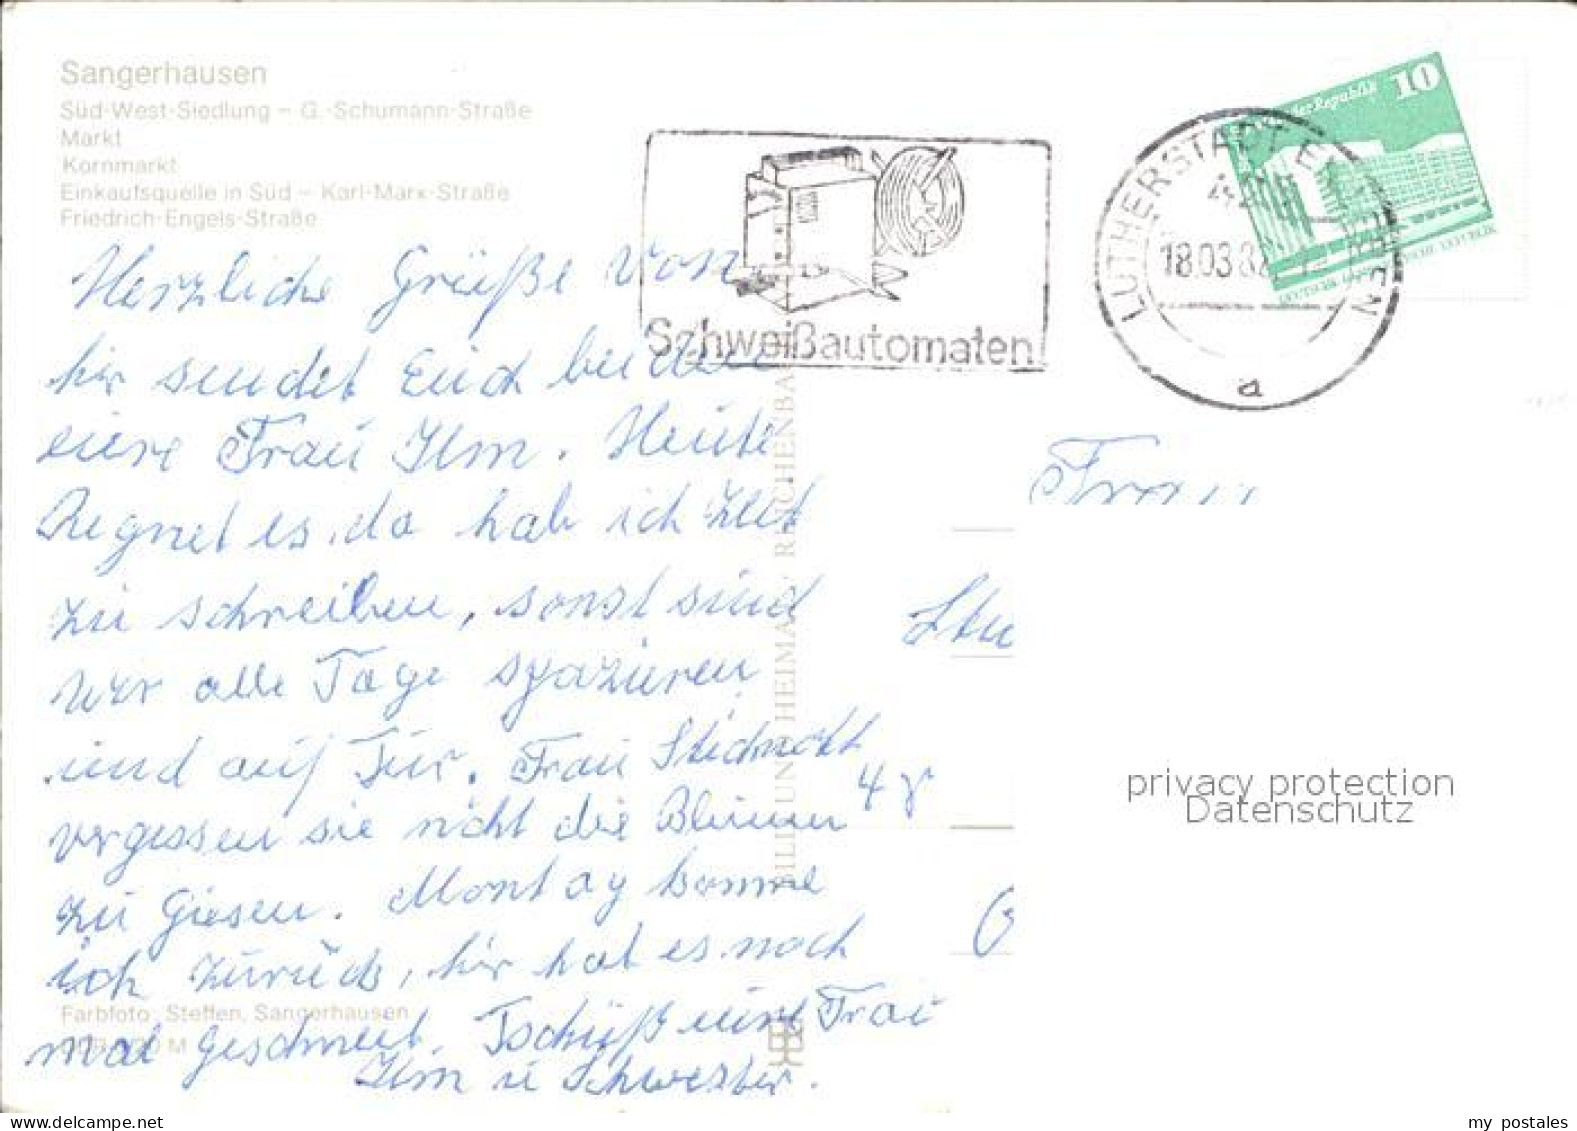 Sangerhausen
Süd-West-Siedlung – G.-Schumann-Straße
Markt
Kornmarkt
Einkaufsquelle in Süd – Karl-Marx-Straße
Friedrich-Engels-Straße
Herzliche Grüße von
hir sendet Euch beiden
eure Frau Ilm. Heute
Regnet es, da hab ich Zeit
zu schreiben, sonst sind
wir alle Tage spazieren
und auf Tur. Frau
vergessen sie nicht die Blumen
zu Giesen. Montag komme
ich zurück, hir hat es noch
mal geschneit. Tschüß eure Frau
Ilm u Schwester.
Farbfoto: Steffen, Sangerhausen
M
BILD UND HEIMAT REICHENBACH
Schweißautomaten
LUTHERSTADT EISLEBEN
18.03.8
a
10
DEUTSCHE DEMOKRATISCHE REPUBLIK
Frau
Stu
4
privacy protection
Datenschutz
my postales